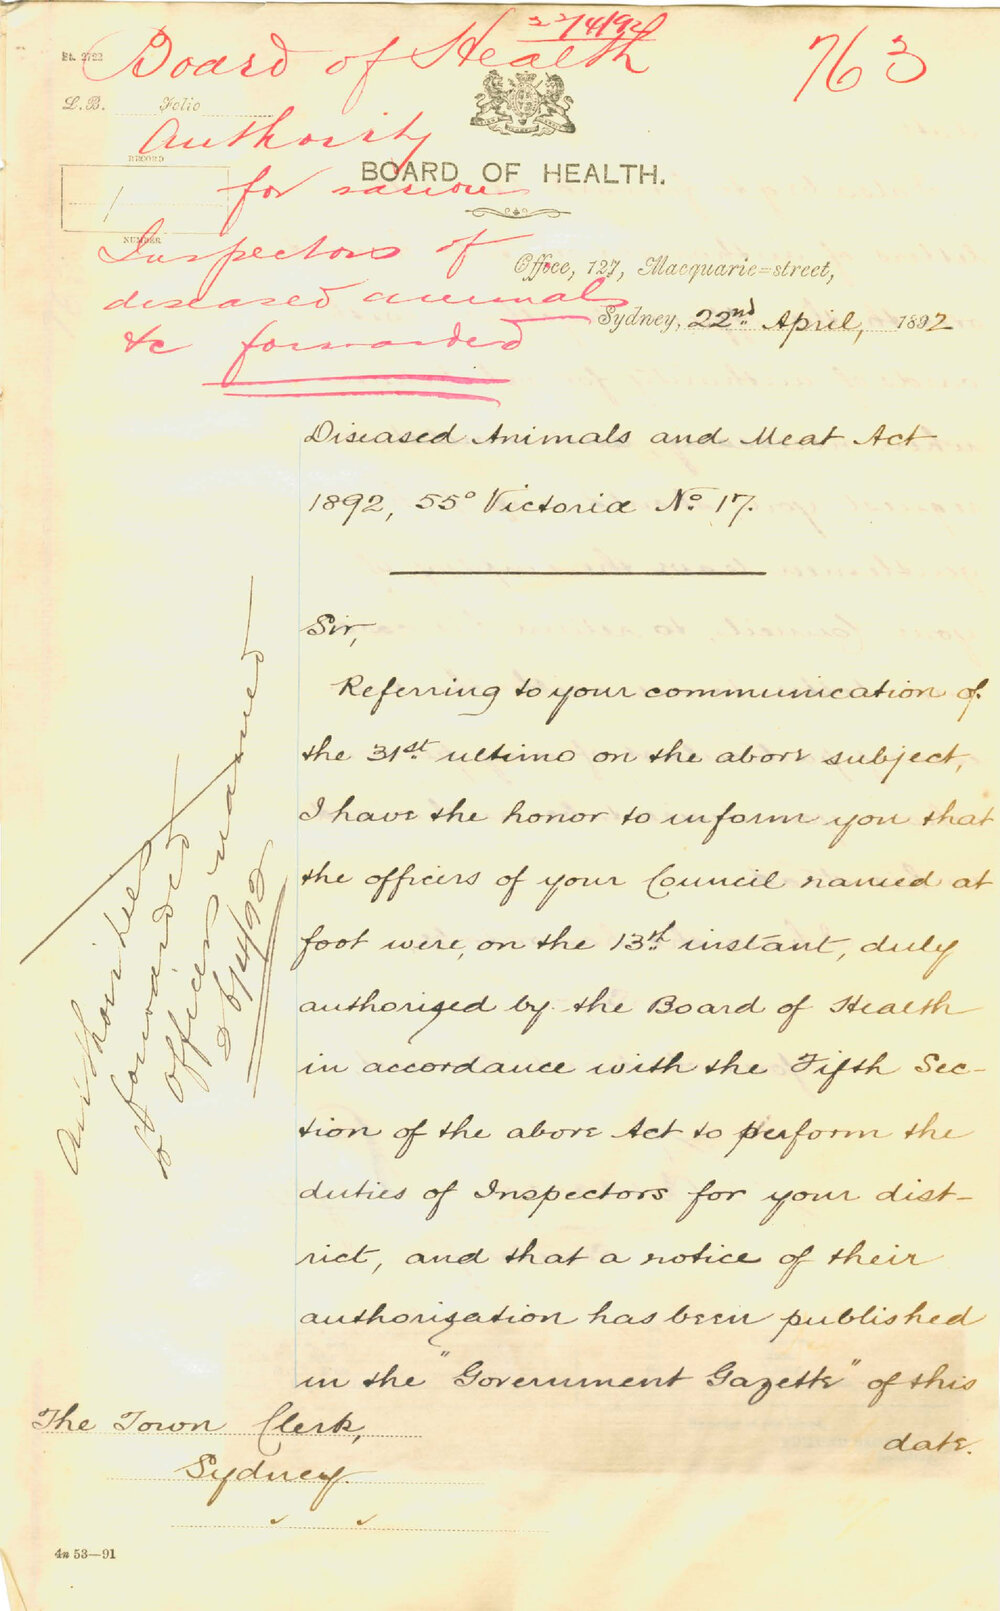 Et. 2722
Board of Health
22/4/92
763
L.B. Folio
Authority
RECORD
BOARD OF HEALTH.
for various
1
NUMBER
Inspectors of
Office, 127, Macquarie=street,
diseased animals
Sydney, 22nd April, 1892
&c forwarded
Diseased Animals and Meat Act
1892, 55º Victoriæ No. 17.
Sir,
Referring to your communication of
the 31st ultimo on the above subject,
I have the honor to inform you that
the officers of your Council named at
foot were, on the 13th instant, duly
authorized by the Board of Health
in accordance with the Fifth Sec-
tion of the above Act to perform the
duties of Inspectors for your dist-
rict, and that a notice of their
authorization has been published
in the "Government Gazette" of this
date.
Authorities
forwarded
to officers named
26/4/92
The Town Clerk,
Sydney.
4n 53—91